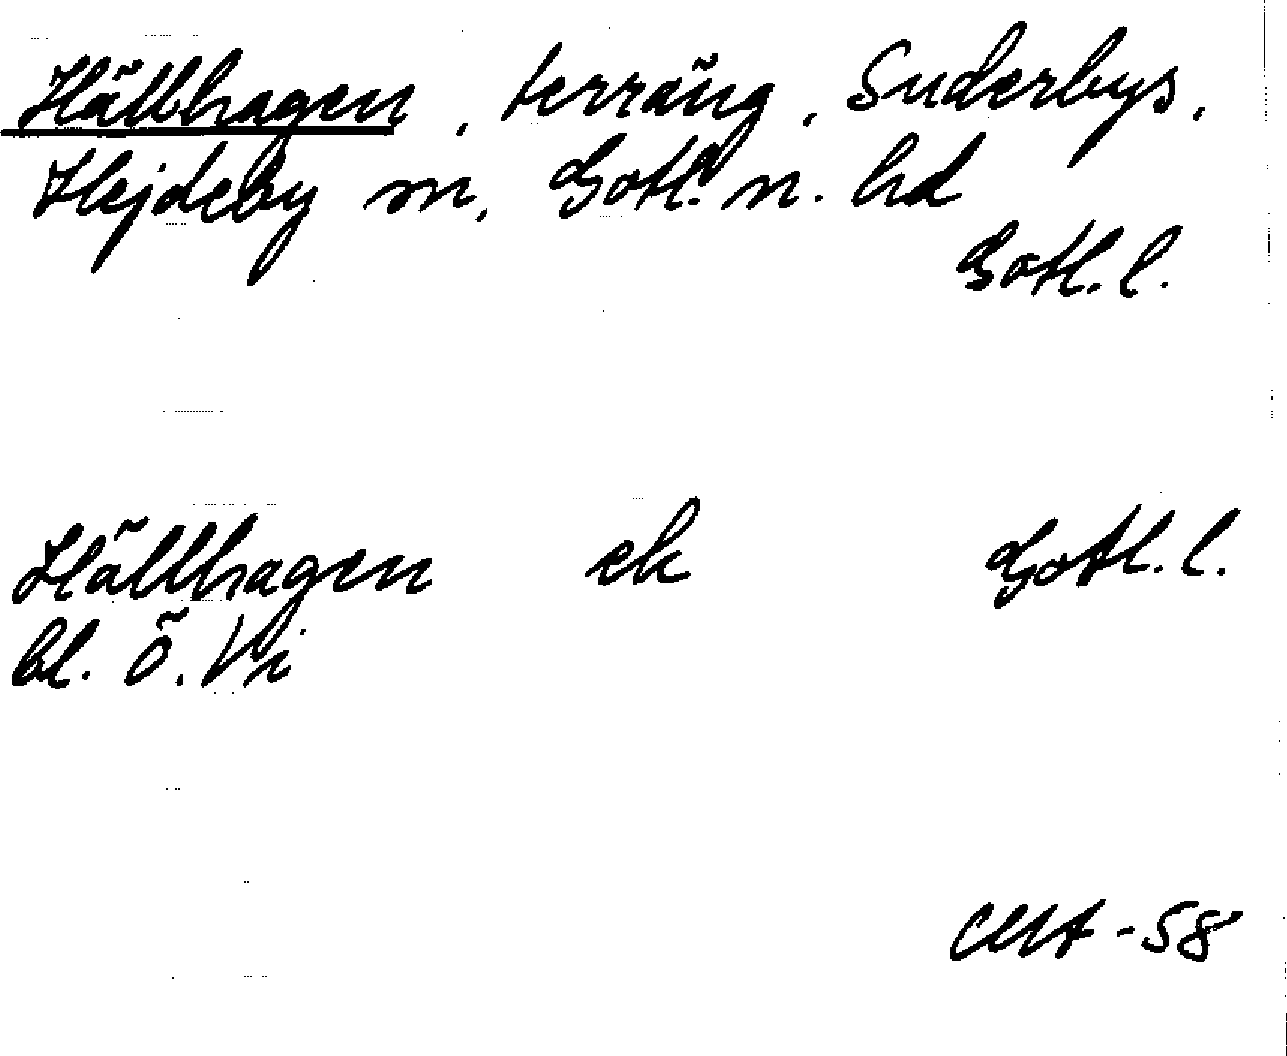 Hällhagen, terräng, Suderbys,
Hejdeby sn, Gotl. n. hd
Gotl. l.
Hällhagen ek Gotl. l.
bl. Ö. Vi
-58